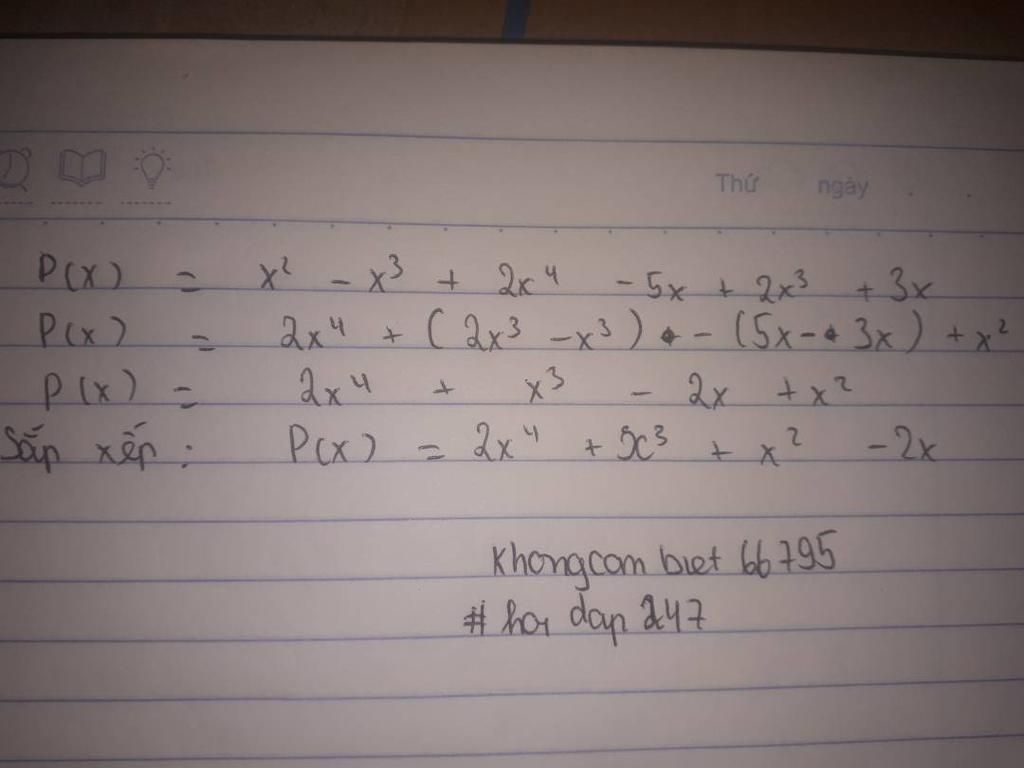 Thứ ngày . .
P(x) = x² - x³ + 2x⁴ - 5x + 2x³ + 3x
P(x) = 2x⁴ + (2x³ - x³) - (5x - 3x) + x²
P(x) = 2x⁴ + x³ - 2x + x²
Sắp xếp : P(x) = 2x⁴ + x³ + x² - 2x
khongcam biet 66795
# hoi dap 247